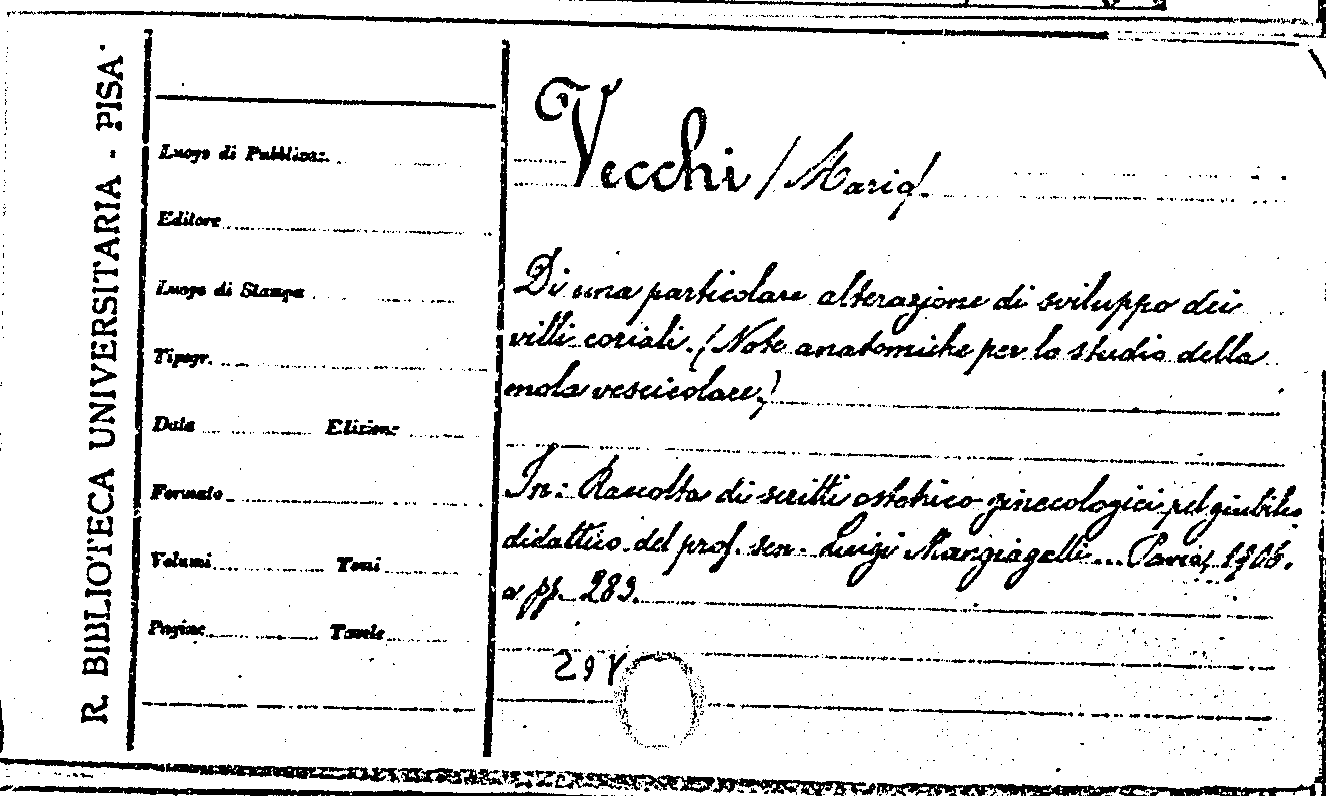 R. BIBLIOTECA UNIVERSITARIA - PISA
Luogo di Pubblicaz.
Editore
Luogo di Stampa
Tipogr.
Data Edizione
Formato
Volumi Tomi
Pagine Tavole
Vecchi /Mario/.
Di una particolare alterazione di sviluppo dei
villi coriali. (Note anatomiche per lo studio della
mola vescicolare.)
In: Raccolta di scritti ostetrico-ginecologici pel giubileo
didattico del prof. sen. Luigi Mangiagalli... Pavia, 1906.
a pp. 283.